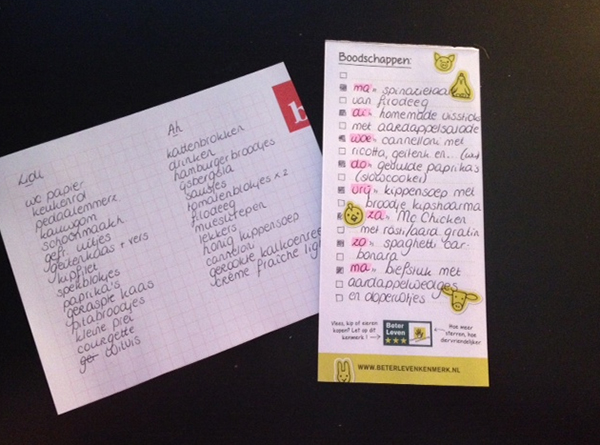 Lidl
wc papier
keukenrol
pedaalemmerz.
kauwgom
schoonmaakh.
gefr. uitjes
geitenkaas + vers
kipfilet
spekblokjes
paprika's
geraspte kaas
pitabroodjes
kleine prei
courgette
Ah
kattenbrokken
drinken
hamburgerbroodjes
ijsbergsla
sausjes
tomatenblokjes x 2
filodeeg
mueslirepen
lekkers
honig kippensoep
canneloni
gerookte kalkoenree
crème fraîche light
b
Boodschappen:
ma: spinazietaart
van filodeeg
di: homemade vissticks
met aardappelsalade
woe: cannelloni met
ricotta, geitenk. en...
do: gevulde paprika's
(slowcooker)
vrij: kippensoep met
broodje kipshoarma
za: Mc Chicken
met rösti/aard. gratin
zo: spaghetti car-
bonara
ma: biefstuk met
aardappelwedges
en doperwtjes
Vlees, kip of eieren
kopen? Let op dit
kenmerk!
Beter
Leven
Hoe meer
sterren, hoe
diervriendelijker
WWW.BETERLEVENKENMERK.NL